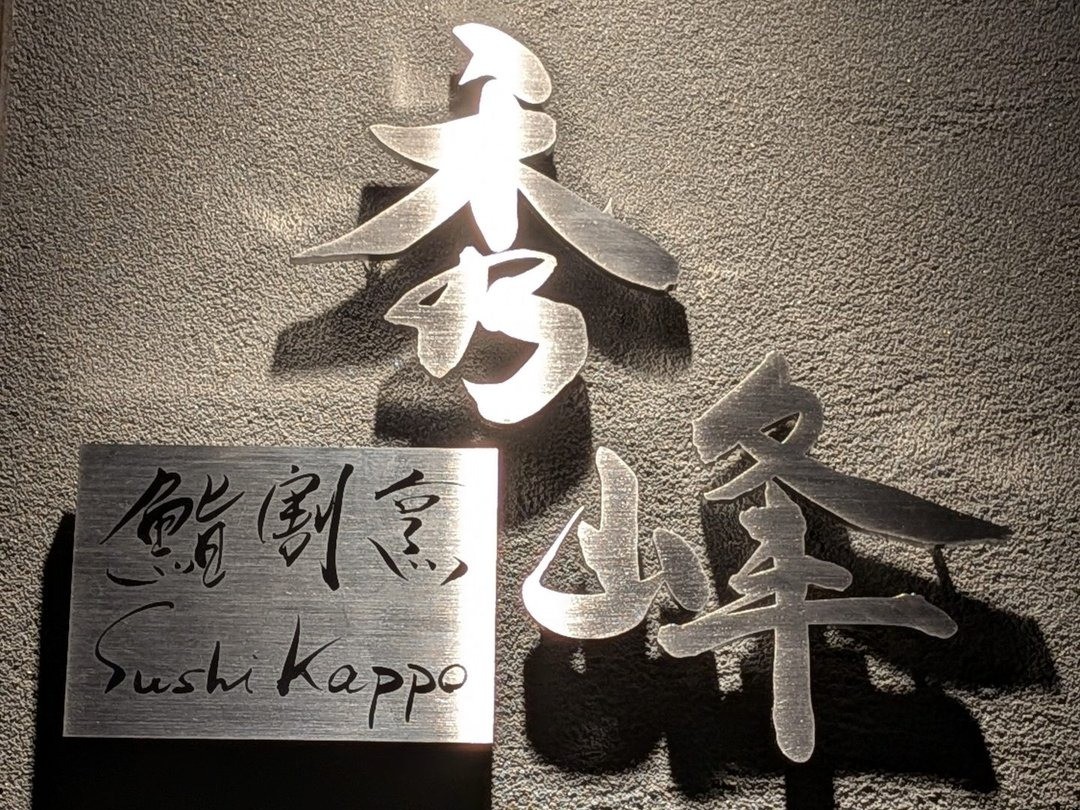 秀峰
鮨割烹
Sushi Kappo